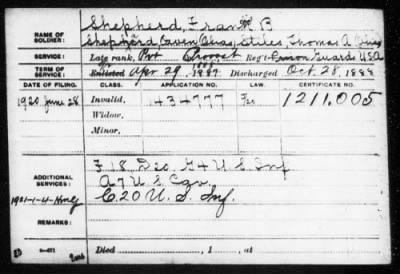 Shepherd, Frank B
NAME OF SOLDIER: Shepherd Owen Alias, Stiles, Thomas A Alias
SERVICE: Late rank, Pvt Provost Reg't Guard U.S.A
TERM OF SERVICE: Enlisted Apr 29, 1887 Discharged Oct. 28, 1888
DATE OF FILING. CLASS. APPLICATION NO. LAW. CERTIFICATE NO.
1920 June 28 Invalid, 1434777 1211,005
Widow,
Minor,
ADDITIONAL SERVICES: F 18, Dec. G 4 U S Inf
A 7 U S Cav.
C. 20 U. S. Inf.
1901-1-4
REMARKS:
Died , 1 , at